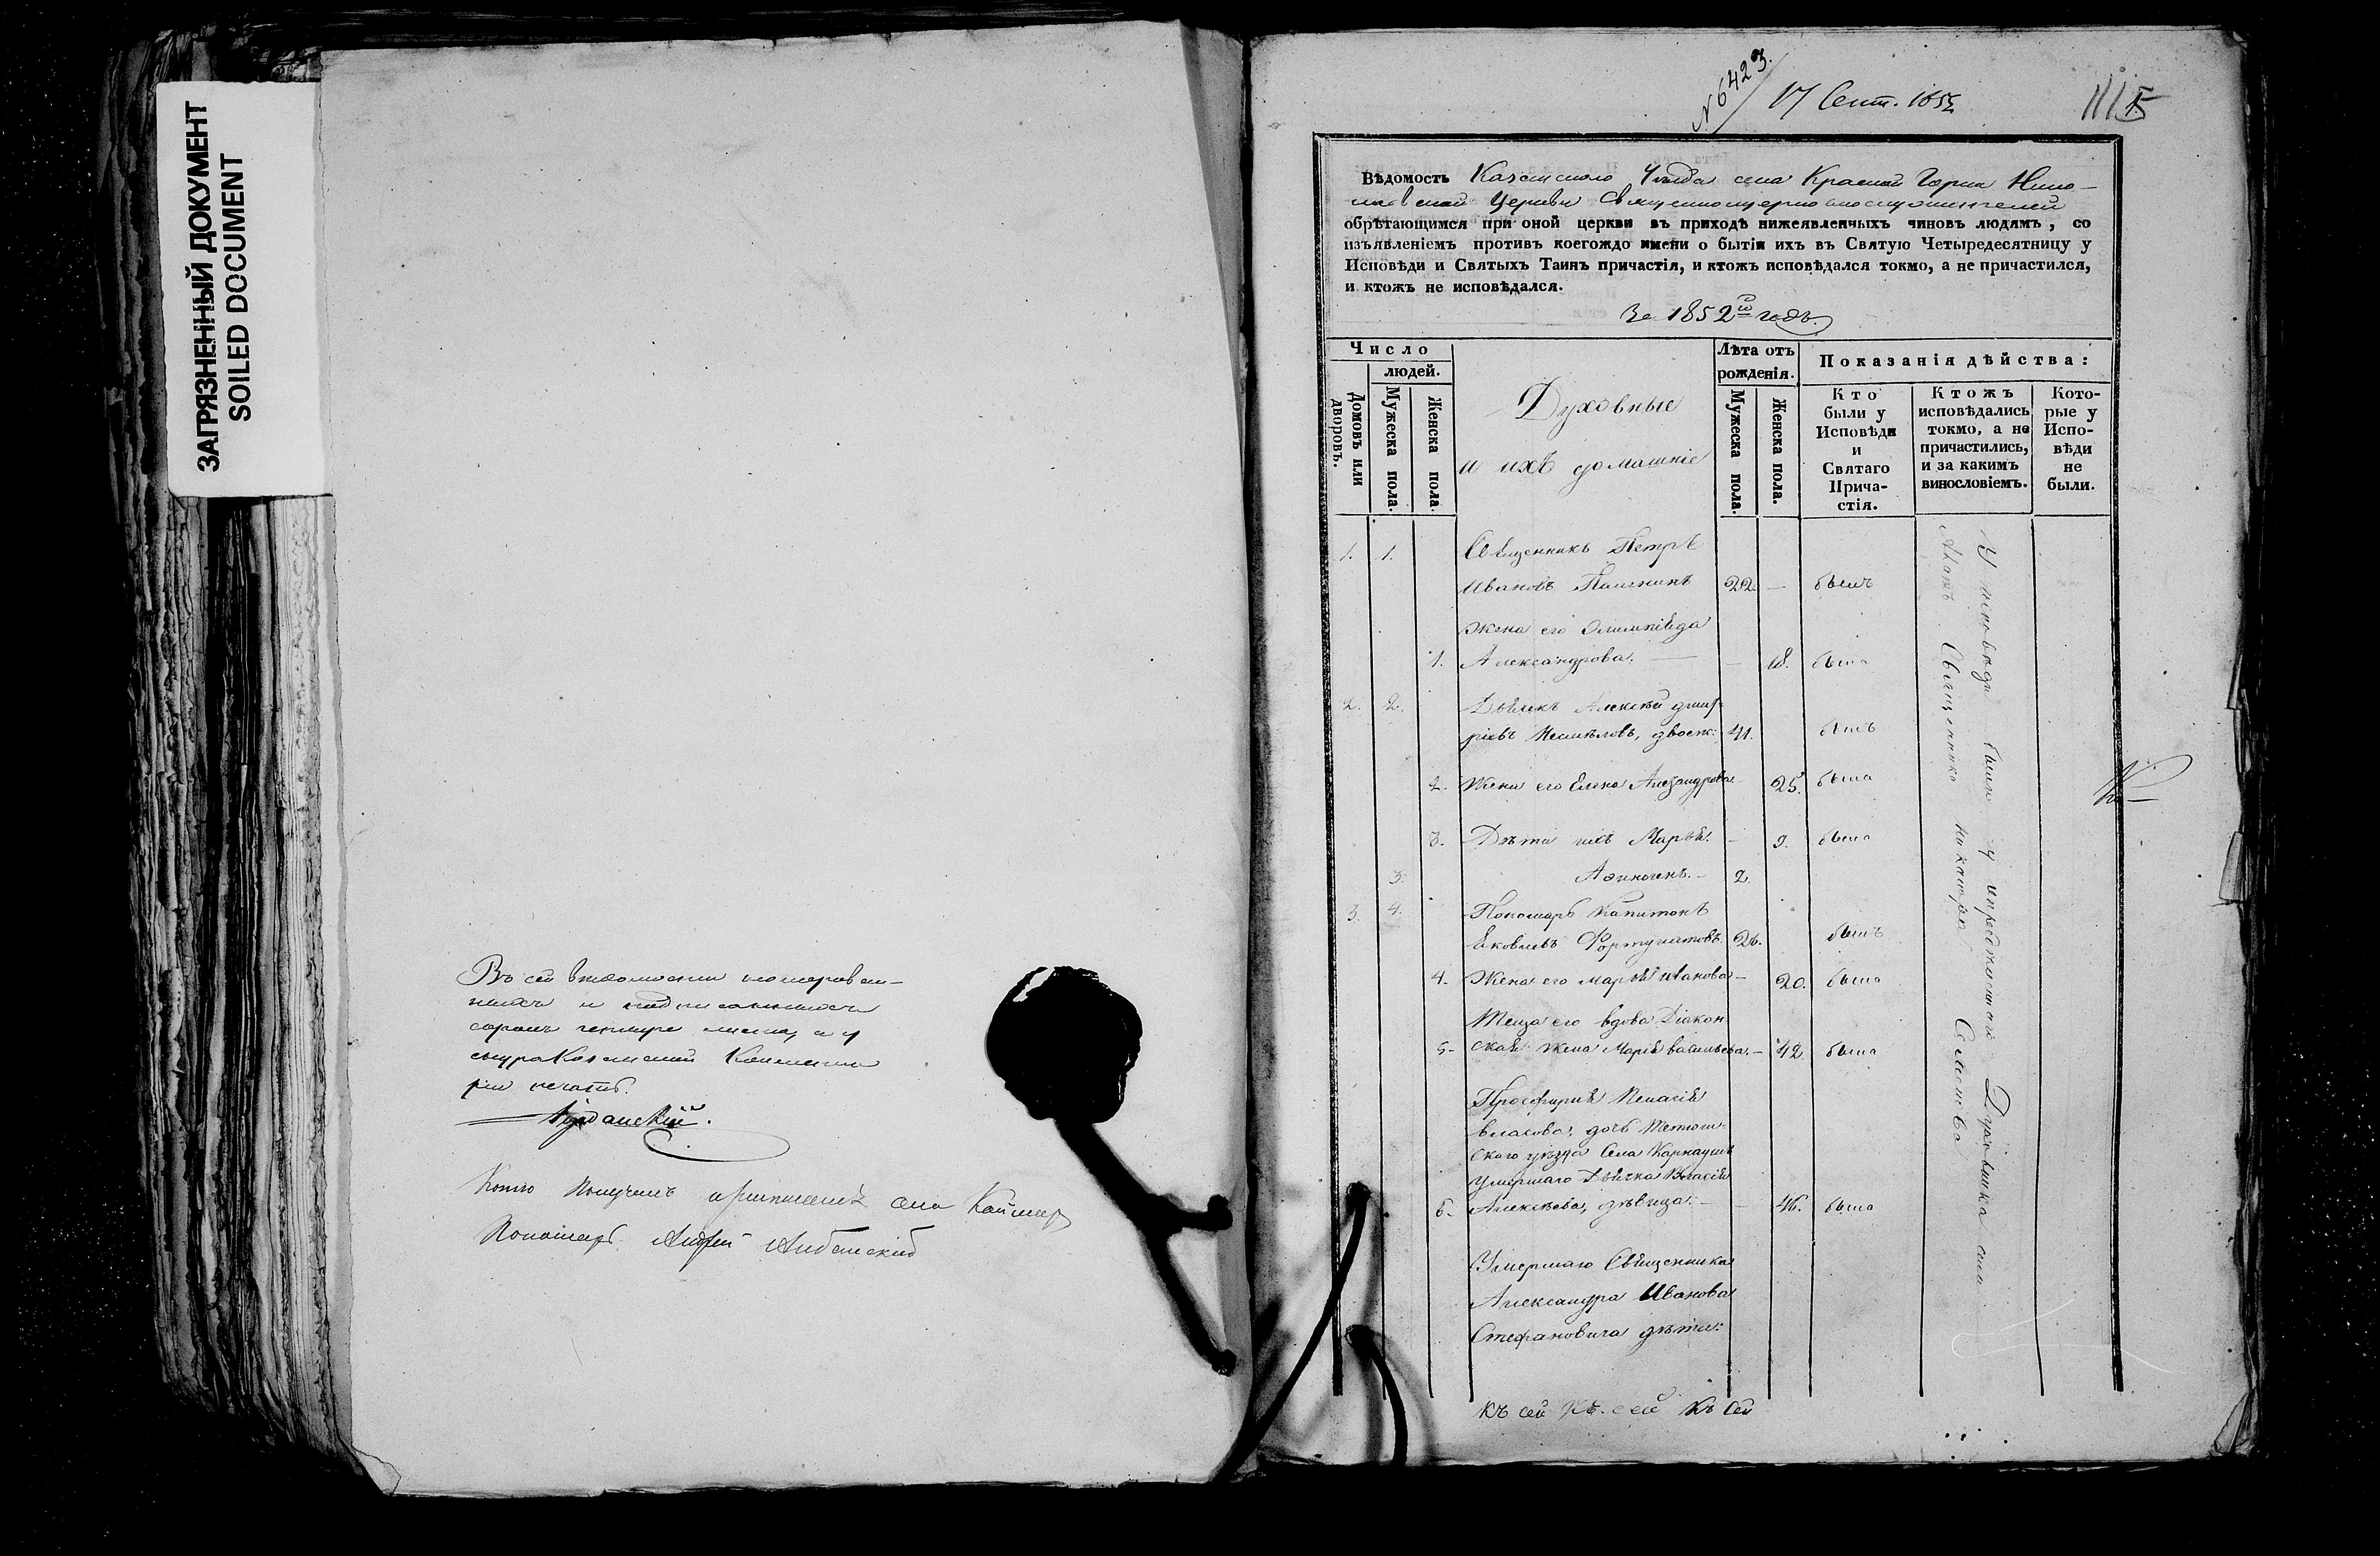 ЗАГРЯЗНЕННЫЙ ДОКУМЕНТ
SOILED DOCUMENT
Въ сей ведомости нумерован-
ныхъ и
сорокъ четыре листа, а у
снура Казанской Консисто-
ріи печать.
Копію получилъ села Каймар
Пономарь Андрей
№ 6423.
17 Сент. 185
Вѣдомость Казанского Уѣзда села Красной Горки Нико-
лаевской Церкви Священноцерковнослужителей
обрѣтающимся при оной церкви въ приходѣ нижеявленныхъ чиновъ людямъ, со
изъявленіемъ противъ коегождо имени о бытіи ихъ въ Святую Четыредесятницу у
Исповѣди и Святыхъ Таинъ причастія, и ктожъ исповѣдался токмо, а не причастился,
и ктожъ не исповѣдался.
За 1852й годъ.
Число
людей.
Домовъ или дворовъ.
Мужеска пола.
Женска пола.
Духовные
и ихъ домашніе
Лѣта отъ
рожденія.
Мужеска пола.
Женска пола.
Показанія дѣйства:
Кто
были у
Исповѣди
и
Святаго
Прича-
стія.
Ктожъ
исповѣдались
токмо, а не
причастились,
и за какимъ
винословіемъ.
Кото-
рые у
Испо-
вѣди
не
были.
1. 1. Священникъ Петръ
Ивановъ 22. — былъ
Жена его Олимпіада
1. Александрова. — — 18. была
2. 2. Дьячекъ Алексѣй Дмит-
ріевъ 41. былъ
2. Жена его Елена Александрова 25. была
3. Дѣти ихъ Марья. — 9. была
3. Афиногенъ. — 2.
3. 4. Пономарь Капитонъ
Яковлевъ Фортунатовъ. 26. былъ
4. Жена его Марья Иванова — 20. была
Теща его вдова Діакон-
5. ская жена Марья Васильева. — 42. была
Просфирня Пелагія
Власова, дочь Тетюш-
скаго уѣзда Села
умершаго Дьячка Власія
6. Алексѣева, дѣвица. — — 46. была
Умершаго Священника
Александра Иванова
Стефановича дѣти:
У исповѣди были у Священника Семенова
къ сей къ сей къ сей